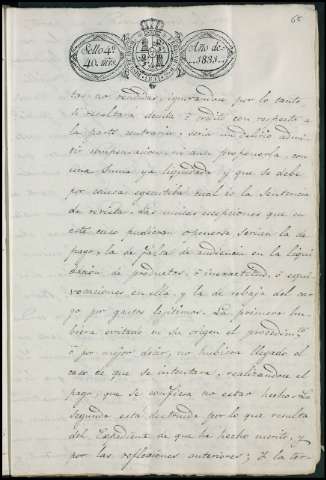 65
Sello 4º
40 mrs.
Año de
1833.
tos no rendidos, ignorandose por lo tanto,
si resultará deuda ó crédito con respecto á
la parte contraria; sería un delirio admi-
tir compensacion, ni aun proponerla, con
una suma ya liquidada y que se debe
por causa egecutiba cual es la Sentencia
de revista. Las unicas escepciones que en
este caso pudieran oponerse serian la de
pago, la de falta de audiencia en la liqui-
dacion de productos, ó inexactitud, ó equi-
vocaciones en ella, y la de rebaja del car-
go por gastos legitimos. La primera hu-
biera evitado en su origen el procedim.to
ó por mejor decir, no hubiera llegado el
caso de que se intentara, realizandose el
pago, que se confiesa no estar hecho. La
segunda está destruida por lo que resulta
del Expediente de que ha hecho merito, y
por las reflexiones anteriores; Y la ter-